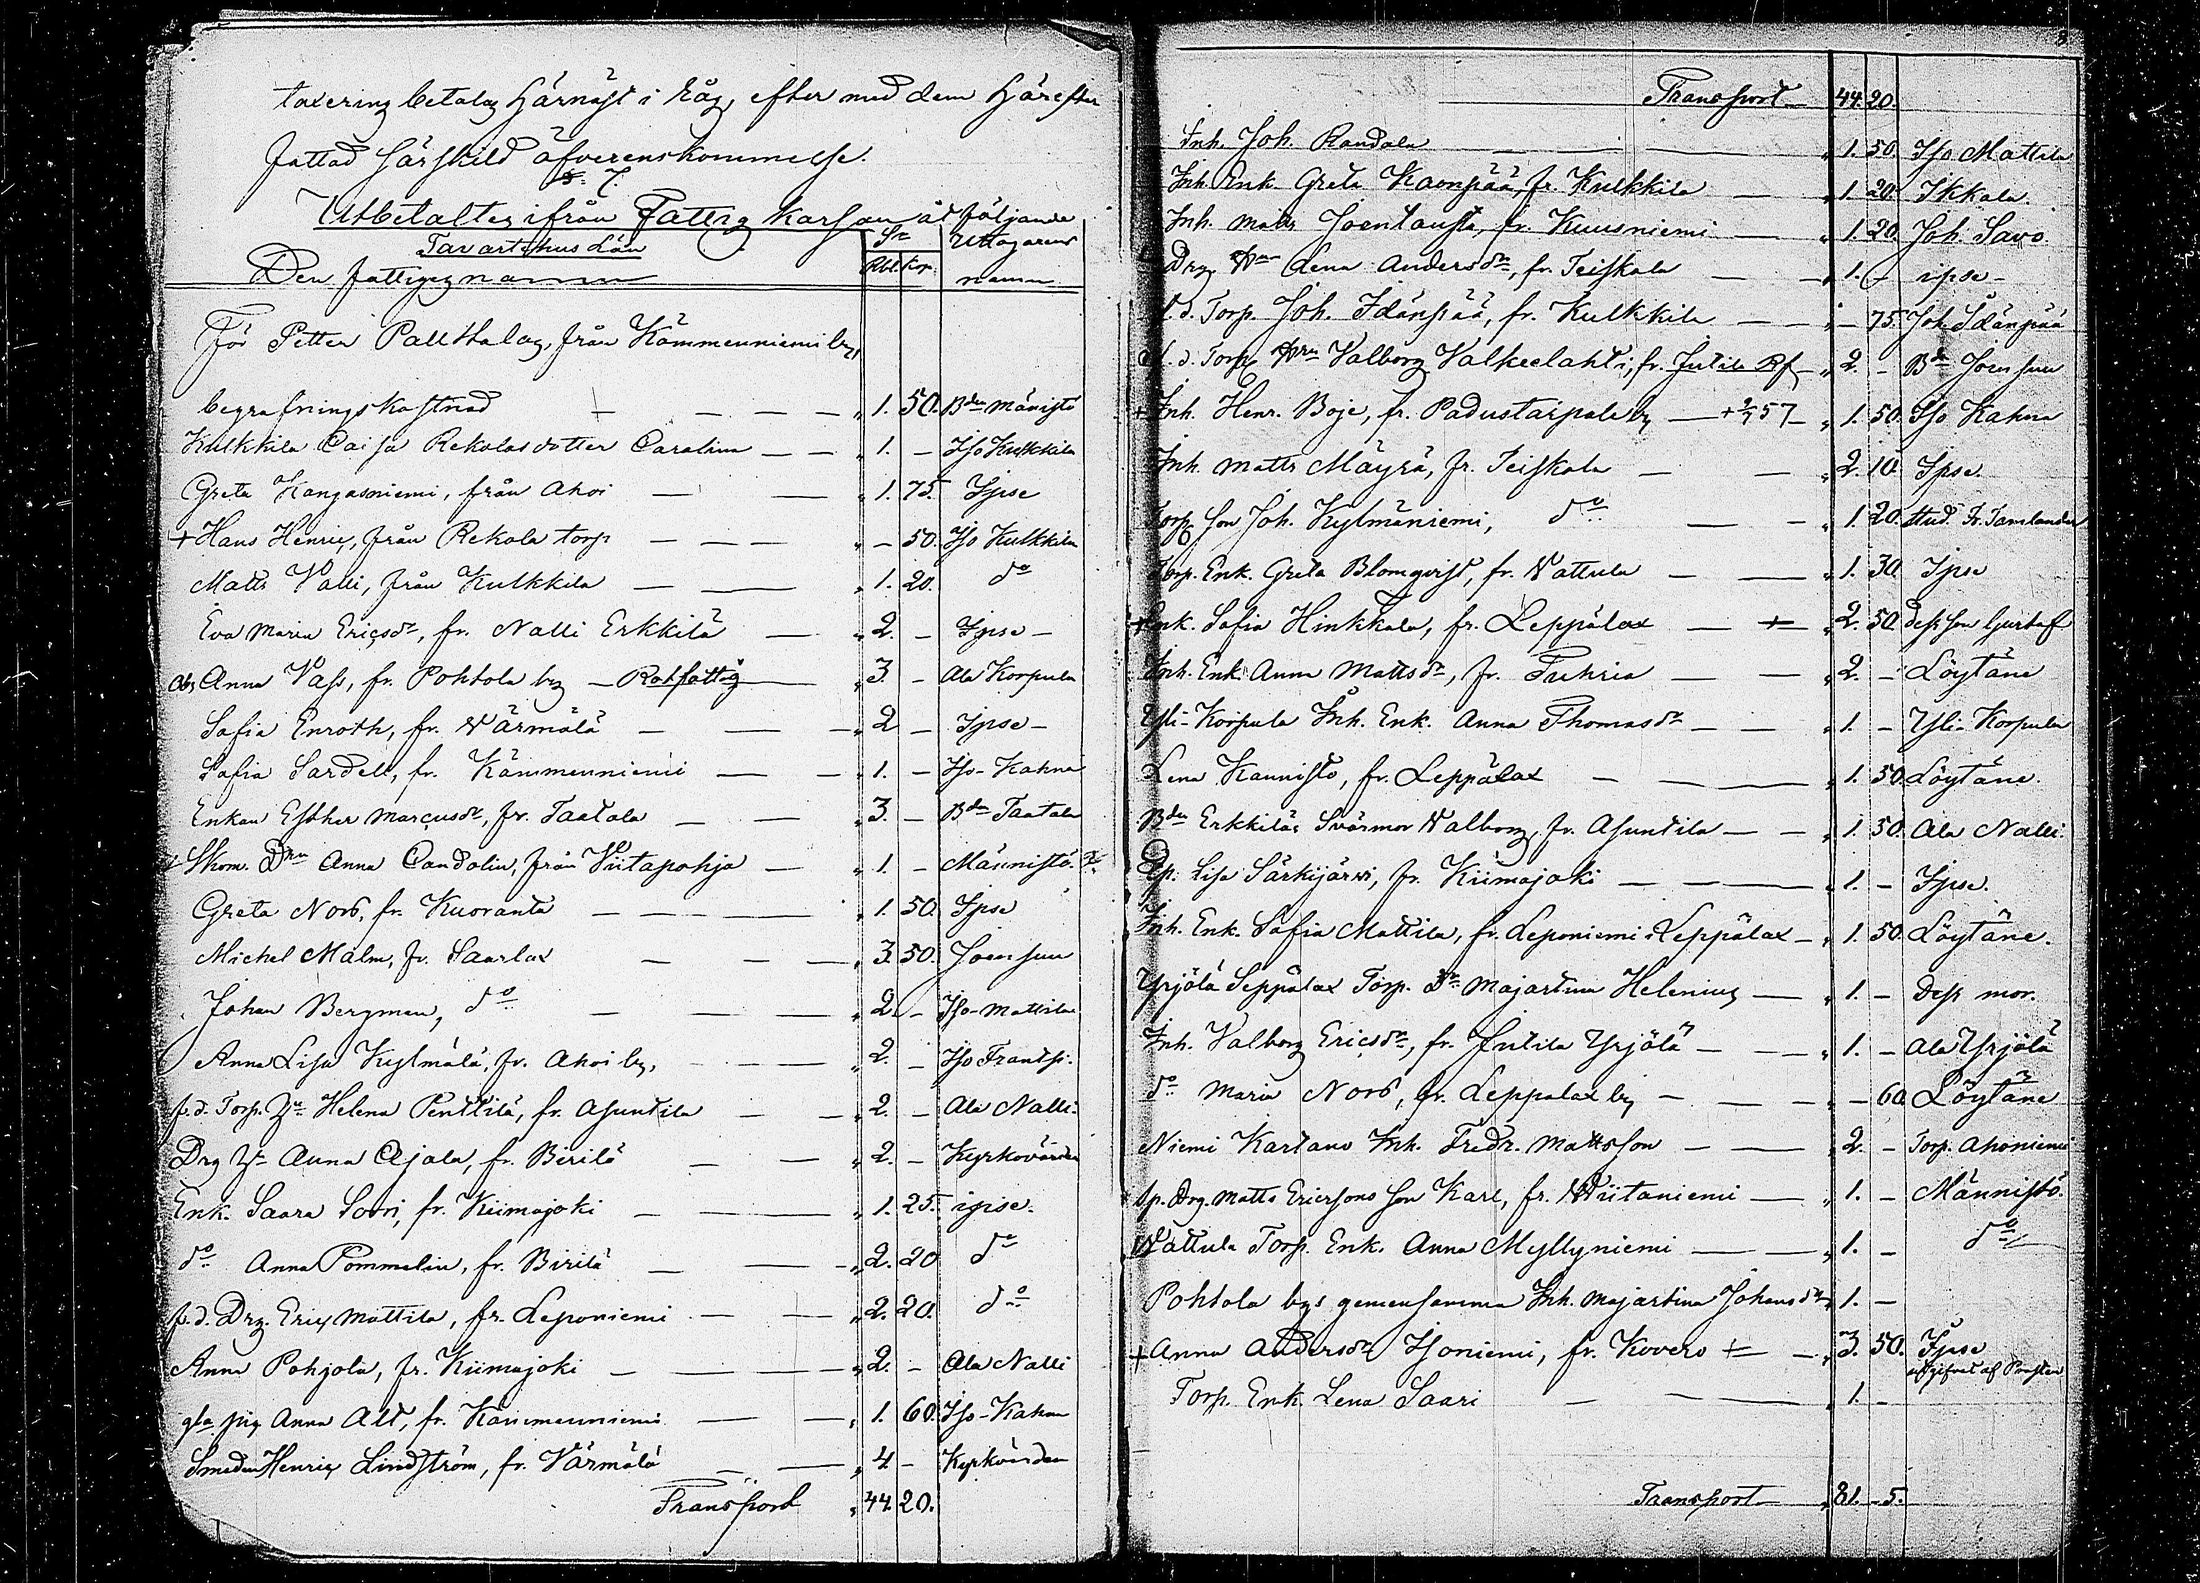 taxering betalas härnäst i Råg, efter med dem härefter
fattad särskild öfverenskommelse.
§. 7.
Utbetaltes ifrån Fattig Kassan åt följande
Tavastehus Län
Sr Uttagarens
Den fattiges namn Rbl. Kop. namn
För Petter Pallthalas, från Kämmenniemi by,
begrafningskostnad — — — — " 1. 50. Bden Mänistö
Kulkkila Caisa Rekolas dotter Carolina — — " 1. — Iso Kulkkila
Greta Kangasniemi, från Ahoi — — " 1. 75. Ipse
+ Hans Henric, från Rekola torp — — — " — 50. Iso Kulkkila
Matts Valli, från Kulkkila — — " 1. 20. do
Eva Maria Ericsdr, fr. Nalli Erkkilä — " 2. — Ipse —
Obs Anna Vass, fr. Pohtola by — Rotfattig — " 3. — Ala Korpula
Sofia Enroth, fr. Wärmälä — — — " 2 — Ipse —
Sofia Sardell, fr. Kämmenniemi — — " 1. — Iso-Kahna
Enkan Esther Marcusdr, fr. Taatala — — " 3. — Bden Taatala
+ Skom. Dn Anna Candolin, från Viitapohja — " 1. — Männistö.
Greta Nord, fr. Kuoranta — — — — " 1. 50. Ipse
Michel Malm, fr. Saarlax — — — " 3. 50. Joensuu
Johan Bergman, do — — — " 2. — Iso-Mattila
Anna Lisa Kylmälä, fr. Ahoi by, — — " 2. — Iso Frantsi.
f.d. Torp. Hu Helena Penttilä, fr. Asuntila — — " 2. — Ala Nalli.
Drg Hu Anna Ajala, fr. Birilä — — " 2. — Kyrkovärden
Enk. Saara Sori, fr. Kiimajoki — — " 1. 25. ipse.
do Anna Pommelin, fr. Birilä — — " 2. 20 do
f.d. Drg. Eric Mattila, fr. Leponiemi — — " 2. 20. do
Anna Pohjola, fr. Kiimajoki — — — " 2. — Ala Nalli
gla pig Anna Alt, fr. Kämmenniemi — — " 1. 60. Iso-Kahna
Smeden Henric Lindström, fr. Värmälä — — " 4. — Kyrkvärden
Transport " 44. 20.
Transport 44. 20.
Inh. Joh. Randala — — " 1. 50. Iso Mattila
Inh. Enk. Greta Kaonpää, fr. Kulkkila — " 1. 20. Ikkala.
Inh. Matts Joentausta, fr. Kuusniemi — " 1. 20. Joh. Savo.
Drg. Lena Andersdr, fr. Teiskola — " 1. — ipse —
f.d. Torp. Joh. Idänpää, fr. Kulkkila — — " — 75. Joh. Idänpää
f.d. Torp. Valborg Valkeelahti, fr. Jutila Rf " 2. — Bden Joensuu
+ Inh. Henr. Boje, fr. Padustaipale by — + 2/7 57 — " 1. 50. Iso Kahna
Inh. Matts Mäyrä, fr. Teiskola — — " 2. 10. Ipse.
Torp son Joh. Kylmäniemi, do — — " 1. 20. Stud. Fr. Tamlander
Torp. Enk. Greta Blomqvist, fr. Wattula — — " 1. 30. Ipse
+ Enk. Sofia Hinkkala, fr. Leppälax — + — " 2. 50. dess son Gustaf
Inh. Enk. Anna Mattsdr, fr. Tuhria — — " 2. — Löytäne
Yli-Korpula Inh. Enk. Anna Thomasdr — — " 1. — Yli-Korpula
Lena Kannisto, fr. Leppälax — — " 1. 50. Löytäne.
Bden Erkkiläs Svärmor Walborg, fr. Asuntila — — " 1. 50. Ala Nalli.
Sp. Lisa Särkijärwi, fr. Kiimajoki — — — " 1. — Ipse.
Inh. Enk. Sofia Mattila, fr. Leponiemi i Leppälax — " 1. 50. Löytäne.
Yrjölä Leppälax Torp. Dr Majastina Helenius — " 1. — Dess mor.
Inh. Valborg Ericsdr, fr. Jutila Yrjölä — — " 1. — Ala Yrjölä
do Maria Nord, fr. Leppalax by — — " — 60 Löytäne
Niemi Kartano Inh. Fredr. Mattsson — — " 2. — Torp. Ahoniemi
Sp. Drg. Matts Ericsons son Karl, fr. Wiitaniemi — " 1. — Männistö.
Wattula Torp. Enk. Anna Myllyniemi — — " 1. — do
Pohtola bys gemensamma Inh. Majastina Johansdr " 1. —
+ Anna Andersdr Isoniemi, fr. Kovero + — " 3. 50. Ipse
utgifvet af Prosten
Torp. Enk. Lena Saari — — " 1. —
Transport " 81. — 5.